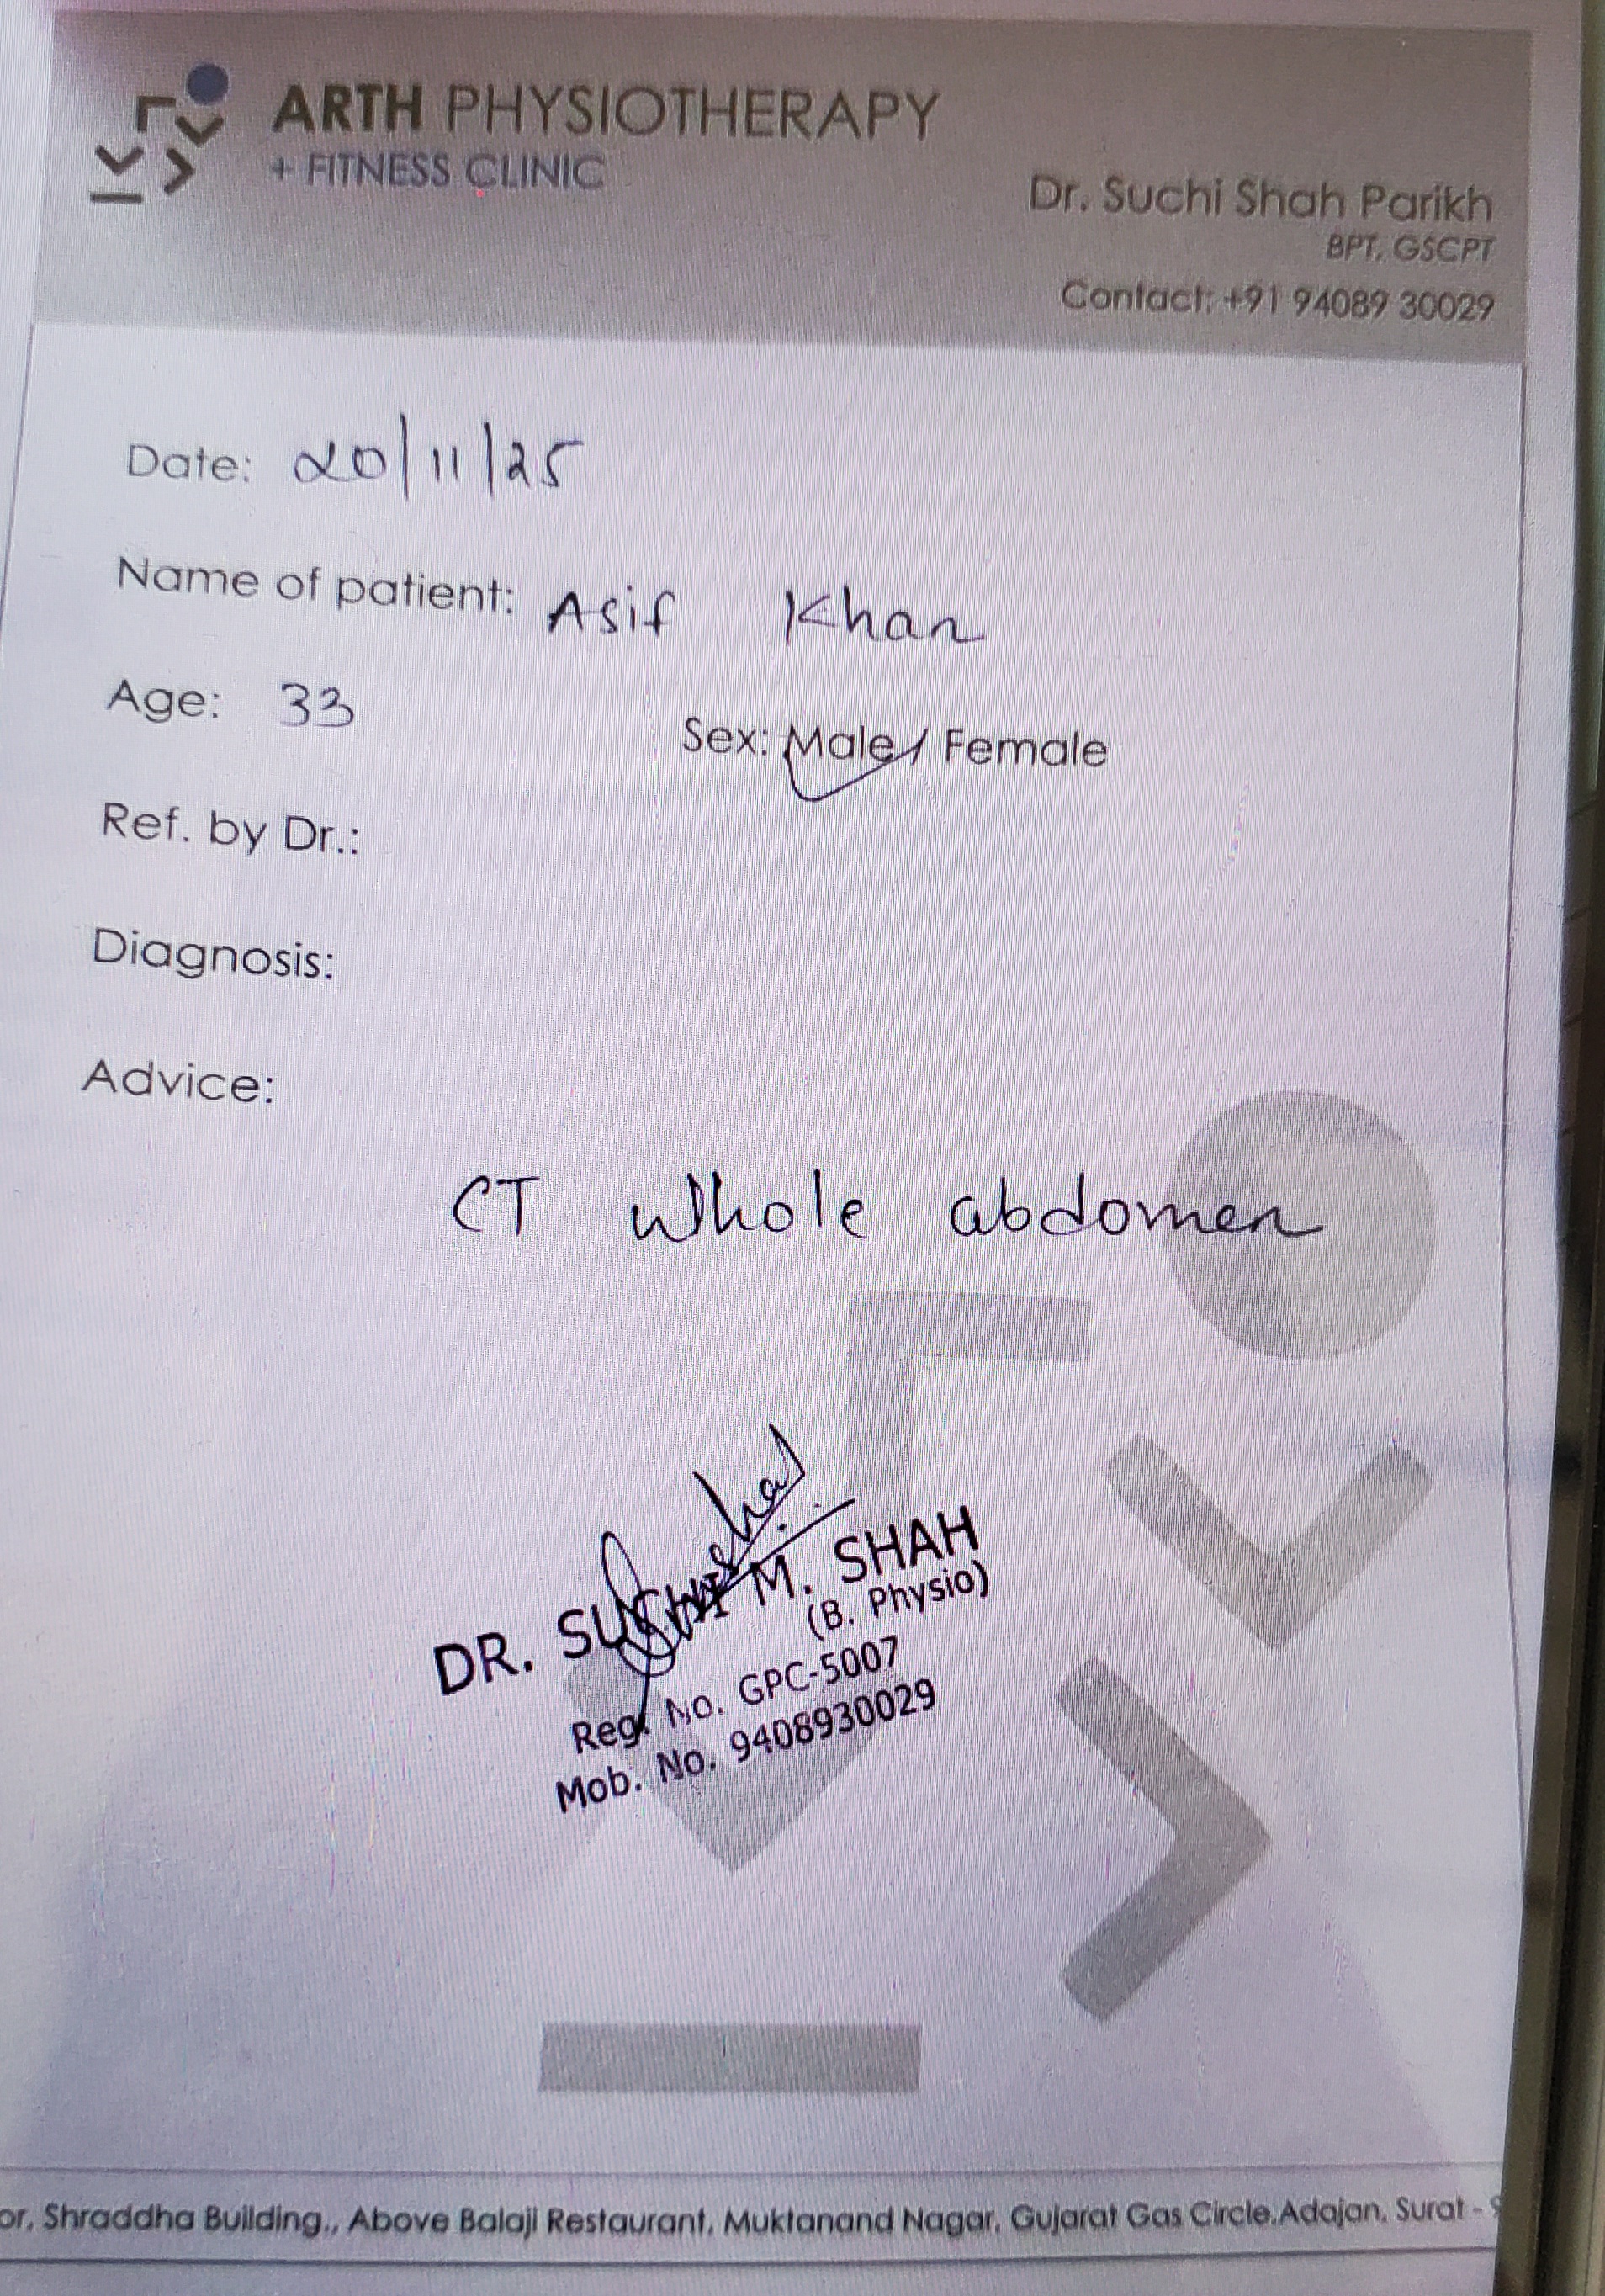 ARTH PHYSIOTHERAPY
+ FITNESS CLINIC
Dr. Suchi Shah Parikh
BPT, GSCPT
Contact: +91 94089 30029
Date: 20/11/25
Name of patient: Asif Khan
Age: 33
Sex: Male / Female
Ref. by Dr.:
Diagnosis:
Advice:
CT whole abdomen
DR. SUCHI M. SHAH
(B. Physio)
Reg. No. GPC-5007
Mob. No. 9408930029
or, Shraddha Building,, Above Balaji Restaurant, Muktanand Nagar, Gujarat Gas Circle,Adajan, Surat -